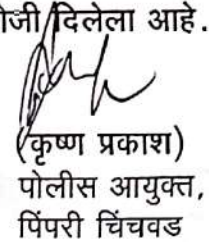 दिलेला आहे.
(कृष्ण प्रकाश)
पोलीस आयुक्त,
पिंपरी चिंचवड